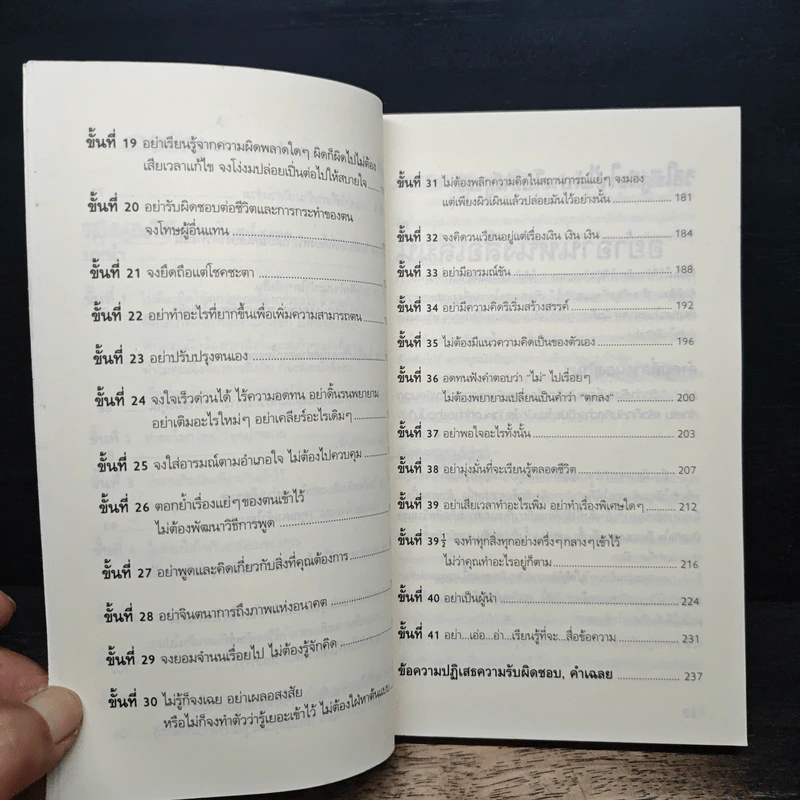 ขั้นที่ 19 อย่าเรียนรู้จากความผิดพลาดใดๆ ผิดก็ผิดไปไม่ต้อง
เสียเวลาแก้ไข จงโง่งมปล่อยเป็นต่อไปให้สบายใจ
ขั้นที่ 20 อย่ารับผิดชอบต่อชีวิตและการกระทำของตน
จงโทษผู้อื่นแทน
ขั้นที่ 21 จงยึดถือแต่โชคชะตา
ขั้นที่ 22 อย่าทำอะไรที่ยากขึ้นเพื่อเพิ่มความสามารถตน
ขั้นที่ 23 อย่าปรับปรุงตนเอง
ขั้นที่ 24 จงใจเร็วด่วนได้ ไร้ความอดทน อย่าดิ้นรนพยายาม
อย่าเติมอะไรใหม่ๆ อย่าเคลียร์อะไรเดิมๆ
ขั้นที่ 25 จงใส่อารมณ์ตามอำเภอใจ ไม่ต้องไปควบคุม
ขั้นที่ 26 ตอกย้ำเรื่องแย่ๆของตนเข้าไว้
ไม่ต้องพัฒนาวิธีการพูด
ขั้นที่ 27 อย่าพูดและคิดเกี่ยวกับสิ่งที่คุณต้องการ
ขั้นที่ 28 อย่าจินตนาการถึงภาพแห่งอนาคต
ขั้นที่ 29 จงยอมจำนนเรื่อยไป ไม่ต้องรู้จักคิด
ขั้นที่ 30 ไม่รู้ก็จงเฉย อย่าเผลอสงสัย
หรือไม่ก็จงทำตัวว่ารู้เยอะเข้าไว้ ไม่ต้องใฝ่หาต้นแบบ
ขั้นที่ 31 ไม่ต้องพลิกความคิดในสถานการณ์แย่ๆ จงมอง
แต่เพียงผิวเผินแล้วปล่อยมันไว้อย่างนั้น 181
ขั้นที่ 32 จงคิดวนเวียนอยู่แต่เรื่องเงิน เงิน เงิน 184
ขั้นที่ 33 อย่ามีอารมณ์ขัน 188
ขั้นที่ 34 อย่ามีความคิดริเริ่มสร้างสรรค์ 192
ขั้นที่ 35 ไม่ต้องมีแนวความคิดเป็นของตัวเอง 196
ขั้นที่ 36 อดทนฟังคำตอบว่า “ไม่” ไปเรื่อยๆ
ไม่ต้องพยายามเปลี่ยนเป็นคำว่า “ตกลง” 200
ขั้นที่ 37 อย่าพอใจอะไรทั้งนั้น 203
ขั้นที่ 38 อย่ามุ่งมั่นที่จะเรียนรู้ตลอดชีวิต 207
ขั้นที่ 39 อย่าเสียเวลาทำอะไรเพิ่ม อย่าทำเรื่องพิเศษใดๆ 212
ขั้นที่ 39½ จงทำทุกสิ่งทุกอย่างครึ่งๆกลางๆเข้าไว้
ไม่ว่าคุณทำอะไรอยู่ก็ตาม 216
ขั้นที่ 40 อย่าเป็นผู้นำ 224
ขั้นที่ 41 อย่า...เอ่อ...อ่า...เรียนรู้ที่จะ...สื่อข้อความ 231
ข้อความปฏิเสธความรับผิดชอบ, คำเฉลย 237